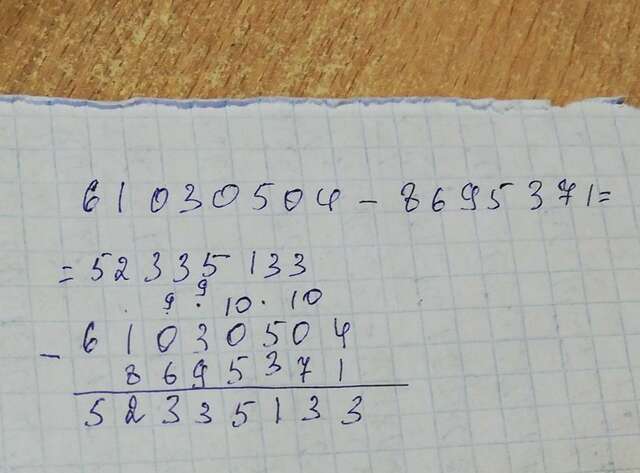 61030504 - 8695371 =
= 52335133
9 9 . 10 . 10
- 61030504
8695371
52335133